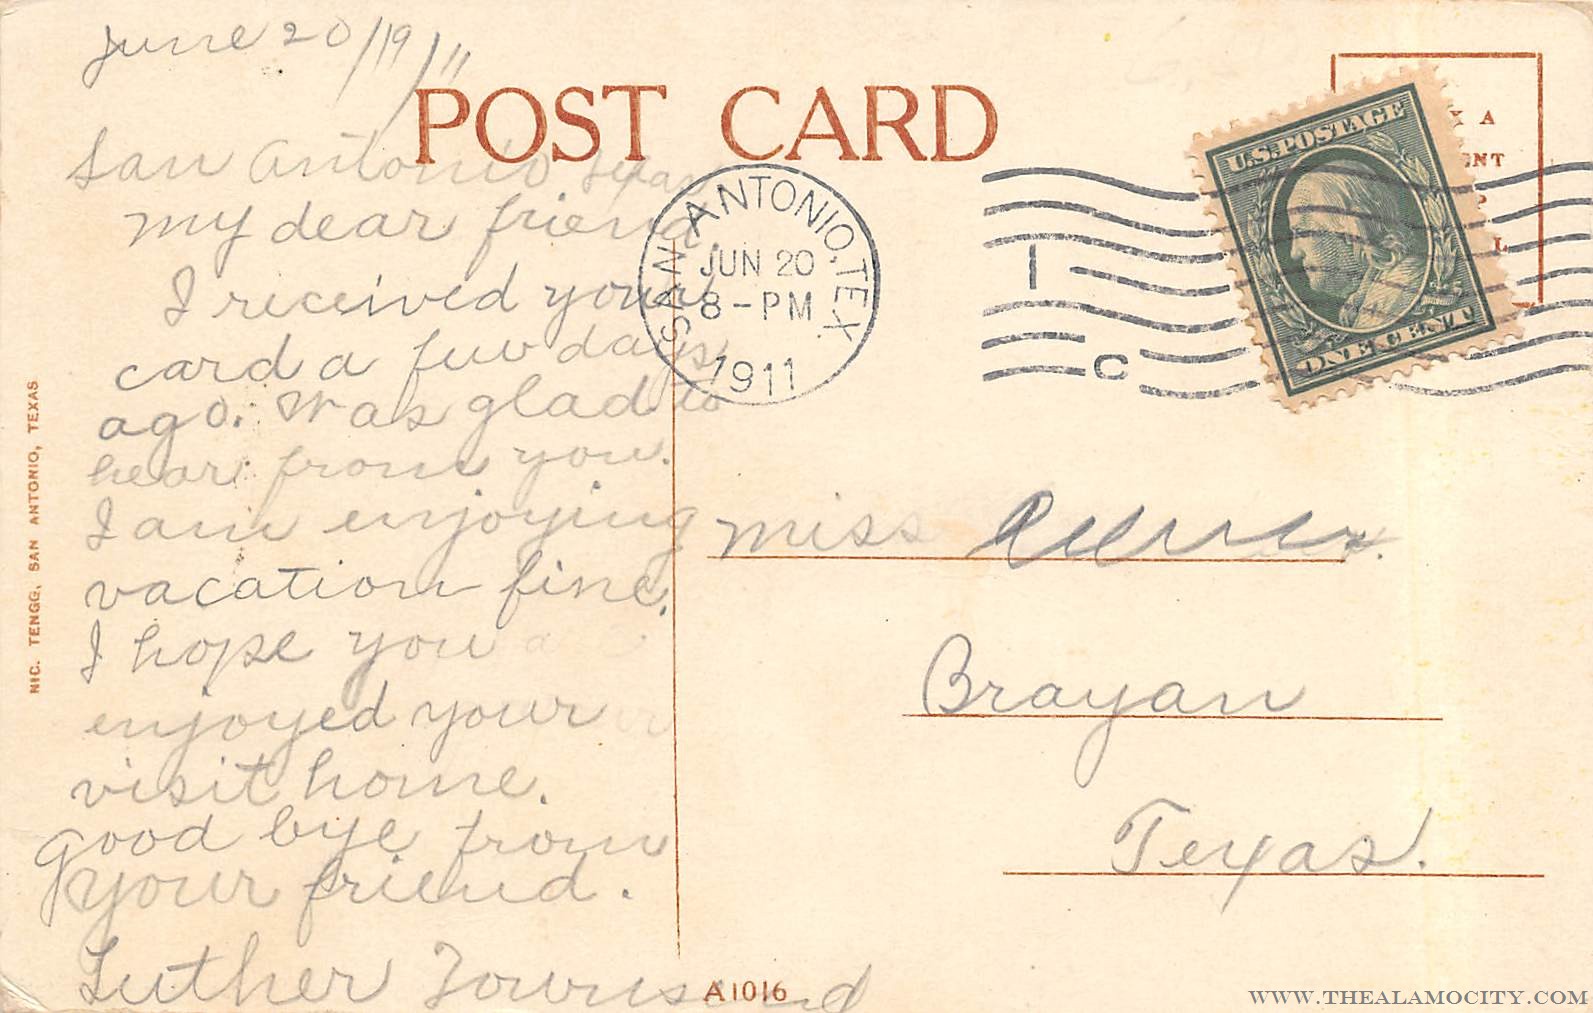 June 20/19/11
POST CARD
San Antonio Texas
My dear friend.
I received your
card a few days
ago. Was glad to
hear from you.
I am enjoying
vacation fine.
I hope you
enjoyed your
visit home.
Good bye from
your friend.
Luther Townsend
NIC. TENGG, SAN ANTONIO, TEXAS
SAN ANTONIO, TEX.
JUN 20
8-PM
1911
1
C
U.S. POSTAGE
ONE CENT
Miss
Brayan
Texas.
A1016
WWW.THEALAMOCITY.COM